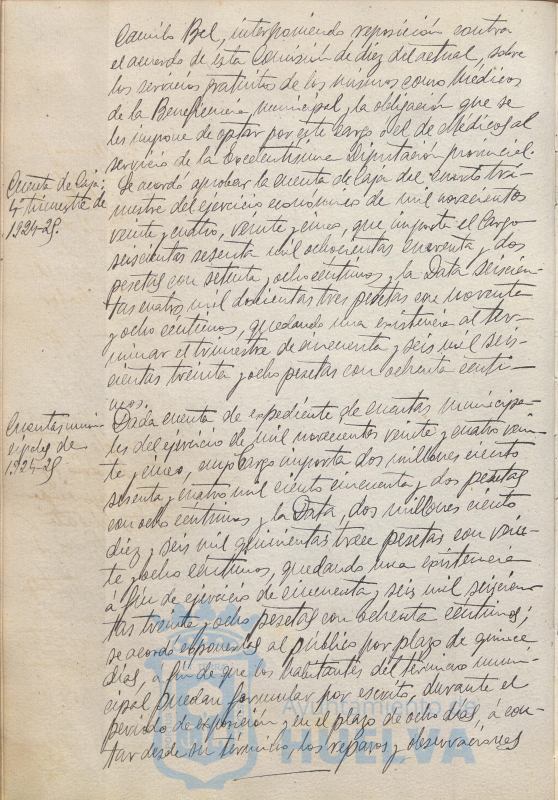 Camilo Bel, interponiendo reposición contra
el acuerdo de esta Comisión de diez del actual, sobre
los servicios gratuitos de los mismos como Médicos
de la Beneficencia municipal y la obligación que se
les impone de optar por este cargo o el de Médicos al
servicio de la Excelentísima Diputación provincial.
Cuenta de Caja;
4º trimestre de
1924-25.
Se acordó aprobar la cuenta de Caja del cuarto tri-
mestre del ejercicio económico de mil novecientos
veinte y cuatro, veinte y cinco, que importa el Cargo
seiscientas sesenta mil ochocientas cuarenta y dos
pesetas con setenta y ocho céntimos y la Data seiscien-
tas cuatro mil doscientas tres pesetas con noventa
y ocho céntimos, quedando una existencia al ter-
minar el trimestre de cincuenta y seis mil seis-
cientas treinta y ocho pesetas con ochenta cénti-
mos.
Cuentas muni-
cipales de
1924-25
Dada cuenta de expediente de cuentas municipa-
les del ejercicio de mil novecientos veinte y cuatro vein-
te y cinco, cuyo Cargo importa dos millones ciento
sesenta y cuatro mil ciento cincuenta y dos pesetas
con ocho céntimos y la Data, dos millones ciento
diez y seis mil quinientas trece pesetas con vein-
te y ocho céntimos, quedando una existencia
á fin de ejercicio de cincuenta y seis mil seiscien-
tas treinta y ocho pesetas con ochenta céntimos;
se acordó exponerlas al público por plazo de quince
días, á fin de que los habitantes del término muni-
cipal puedan formular por escrito, durante el
periodo de exposición y en el plazo de ocho días, á con-
tar desde su término, los reparos y observaciones
Ayuntamiento de
HUELVA